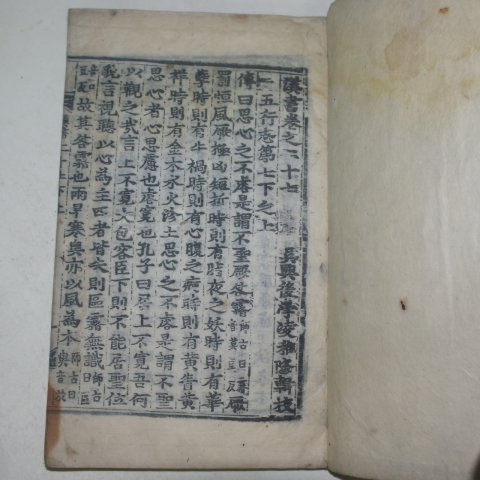 漢書卷之二十七
吳興後學凌稚隆輯校
五行志第七下之上
傳曰思心之不䜭是謂不聖厥咎霿師古曰霿音莫豆反厥
罰恒風厥極凶短折時則有脂夜之妖時則有華
孽時則有牛禍時則有心腹之痾時則有黃眚黃
祥時則有金木水火沴土思心之不䜭是謂不聖
思心者心思慮也䜭寬也孔子曰居上不寬吾何
以觀之哉言上不寬大包容臣下則不能居聖位
貌言視聽以心為主四者皆失則區霿無識師古曰區
音口豆反故其咎霿也雨旱寒奧亦以風為本師古曰奧音於